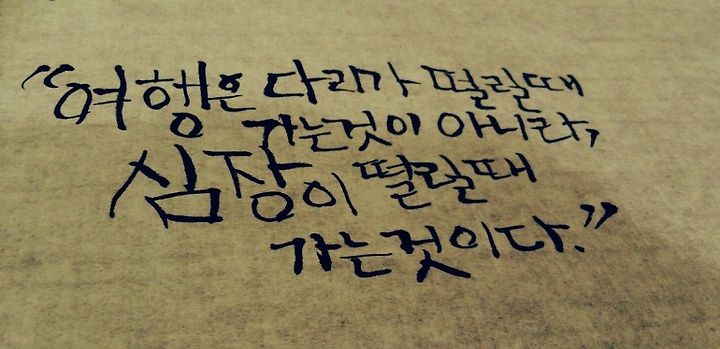 “여행은 다리가 떨릴때
가는것이 아니라,
심장이 떨릴때
가는것이다.”